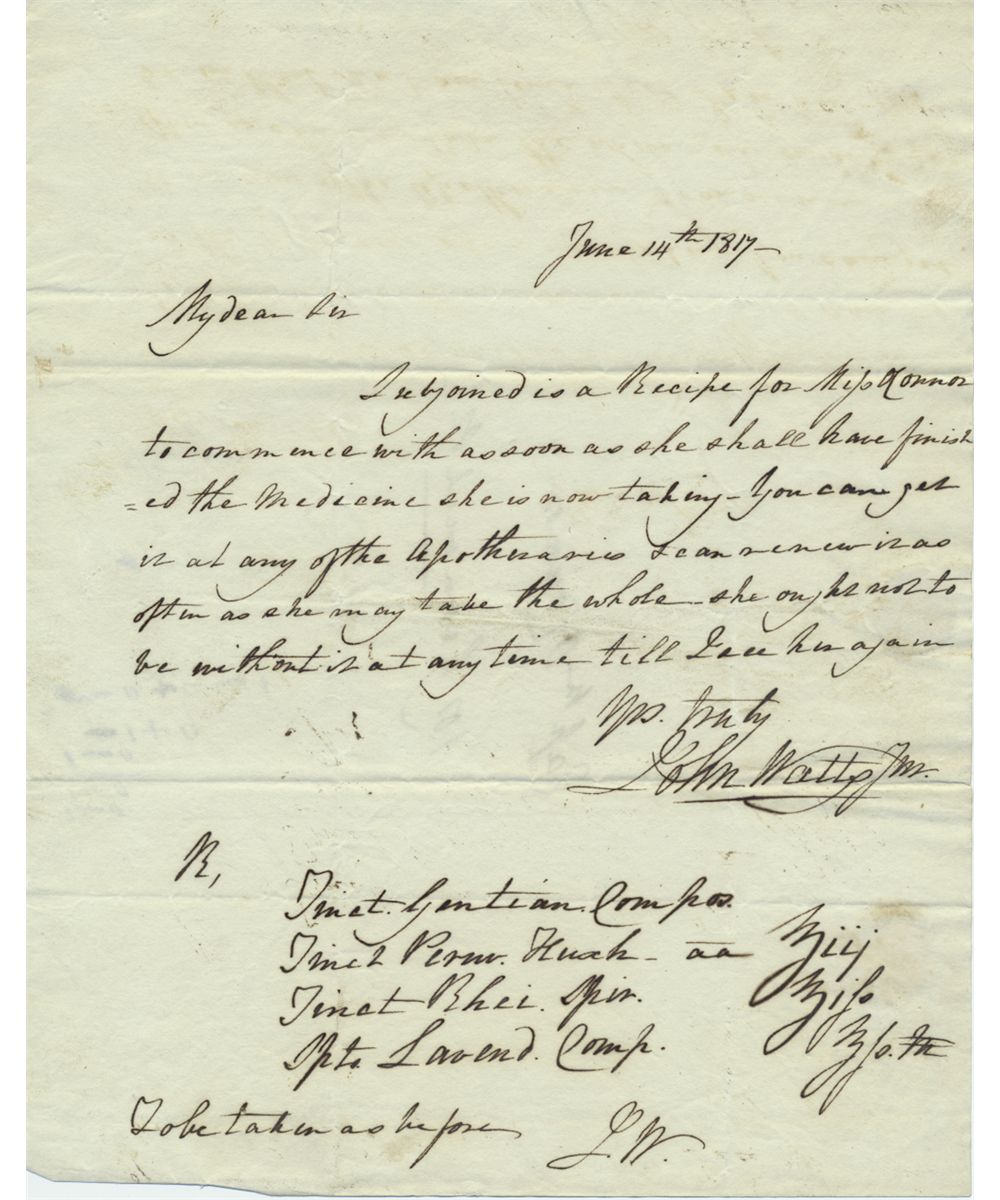 June 14th 1817
My dear Sir
Subjoined is a Recipe for Miss Connor
to commence with as soon as she shall have finish
=ed the Medicine she is now taking - You can get
it at any of the Apothecaries & can renew it as
often as she may take the whole - she ought not to
be without it at any time till I see her again
Yrs. truly
John Watts Jnr.
R,
Tinct. Gentian. Compos.
Tinct Peruv. Huxh - aa ℥iij
Tinct Rhei. Spir. ℥iſs
Spts Lavend. Comp. ℥ſs.
To be taken as before
J. W.